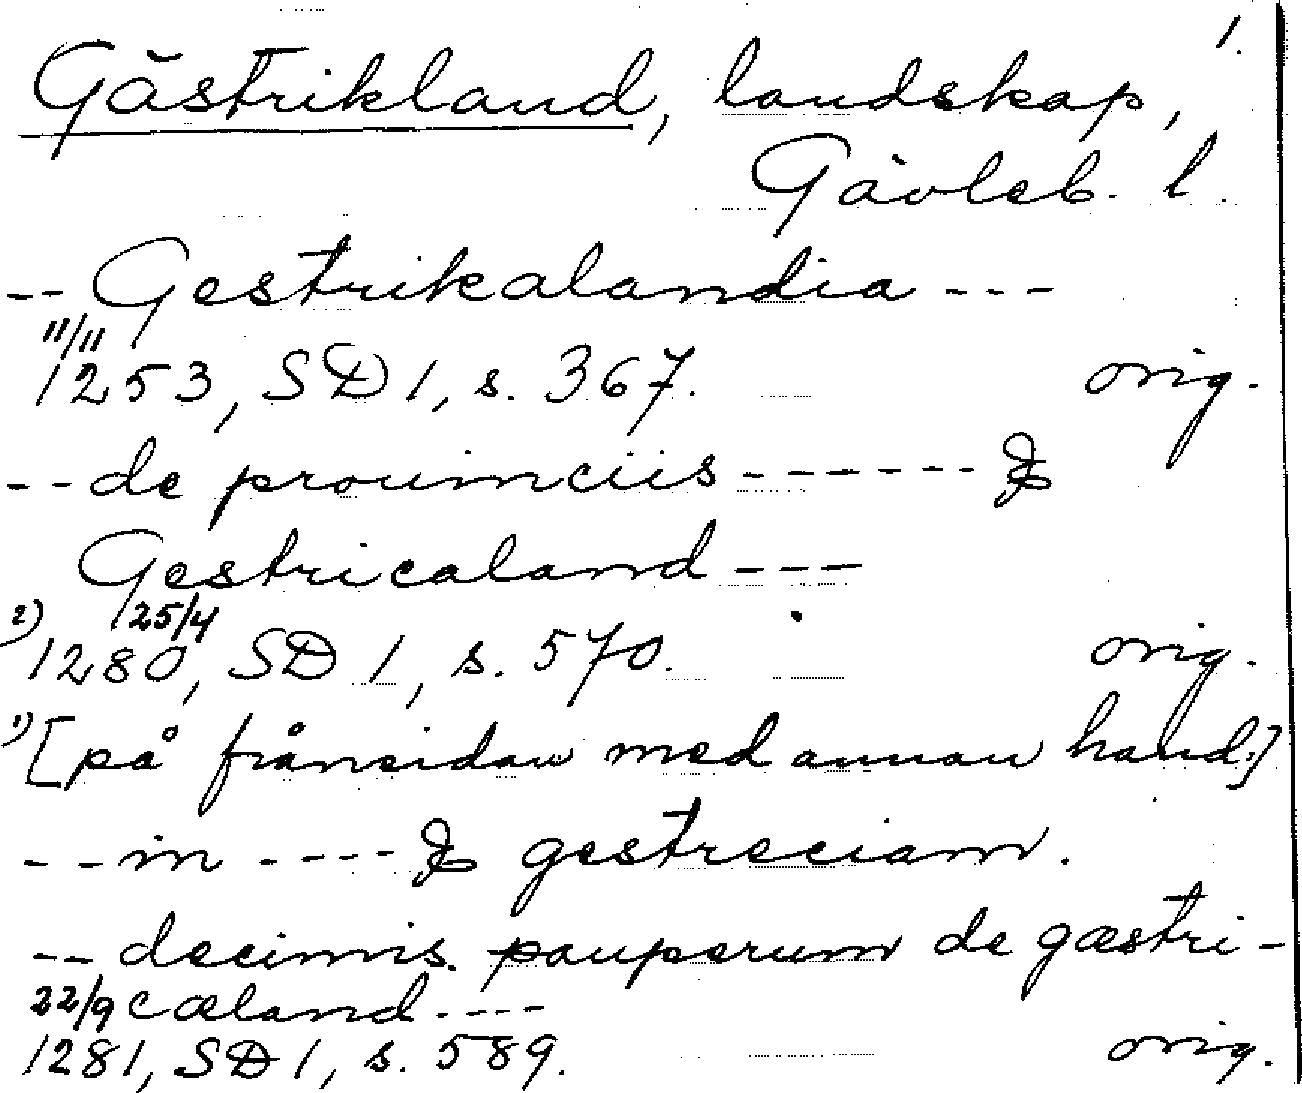 1.
Gästrikland, landskap,
Gävleb. l.
-- Gestrikalandia ---
11/11
1253, SD 1, s. 367. orig.
-- de prouinciis ------- &
Gestricaland ---
2) 25/4
1280, SD 1, s. 570. orig.
1) [på frånsidan med annan hand.]
-- in ---- & gestreciam.
-- decimis pauperum de gæstri-
22/9 cæland ----
1281, SD 1, s. 589. orig.